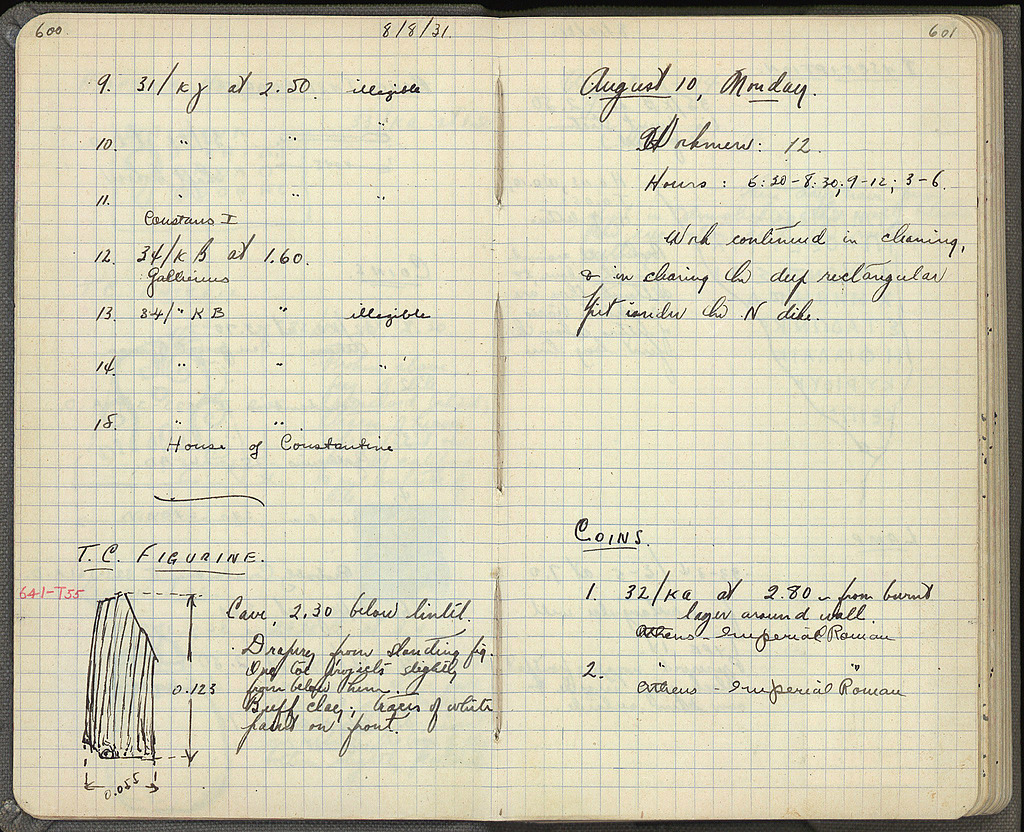 600
8/8/31.
9. 31/KZ at 2.50. illegible
10. " " "
11. " " "
Constans I
12. 34/KB at 1.60.
Gallienus
13. 34/" KB " illegible
14. " " "
15. " "
House of Constantine
T.C. FIGURINE.
641-T55
Cave, 2.30 below lintel.
Drapery from standing fig.
One toe projects slightly
from below hem.
Buff clay; traces of white
paint on front.
0.123
0.055
601
August 10, Monday.
Workmen: 12.
Hours: 6:30-8:30; 9-12; 3-6.
Work continued in cleaning,
& in clearing the deep rectangular
pit under the N dike.
COINS.
1. 32/KA at 2.80 - from burnt
layer around wall.
Athens - Imperial Roman
2. " "
Athens - Imperial Roman